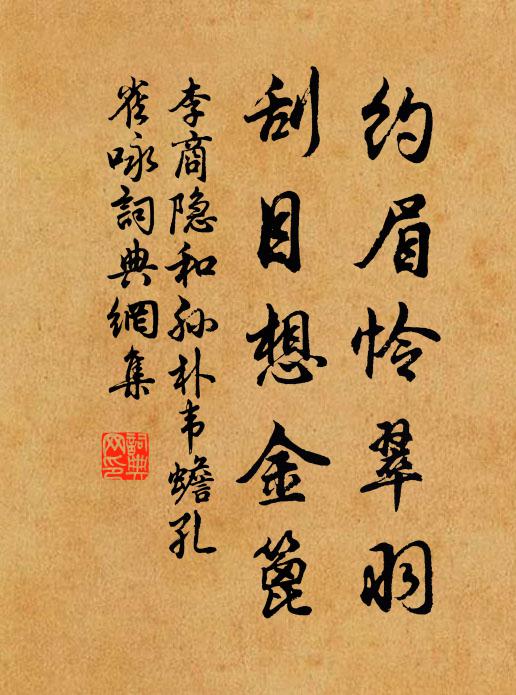 约眉怜翠羽
刮目想金篦
李商隐和孙朴韦蟾孔
雀咏詞典網集
詞典
网印